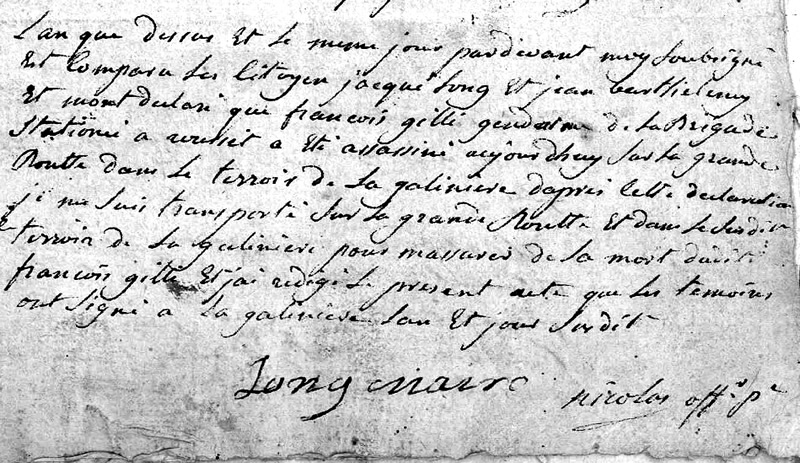 Lan que dessus Et le meme jour pardevant moy soubsigné
Est Comparu Les Citoyen jacque Long Et jean barthelemy
Et mont declaré que francois gille gendarme de la Brigade
Stationé a rousset a Eté assassiné aujourdhuy sur la grande
Routte dans le terroir de la galiniere dapres cette declaration
je me suis transporté sur la grande Routte Et dans le susdit
terroir de la galiniere pour massurer de la mort dudit
francois gille Et j'ai redigé le present acte que les temoins
ont signé a La galiniere Lan Et jour susdit
Long maire nicolas off.r p.e